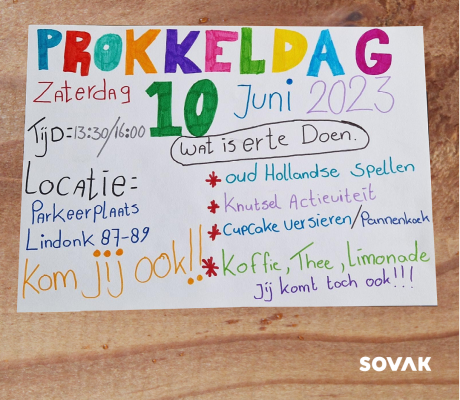 PROKKELDAG
Zaterdag 10 Juni 2023
TijD=13:30/16:00
wat is erte Doen.
Locatie=
Parkeerplaats
Lindonk 87-89
Kom jij ook!!
* oud Hollandse spellen
* Knutsel Actieuiteit
* Cupcake versieren/Pannenkoek
* Koffie, Thee, Limonade
Jij komt toch ook!!!
SOVAK